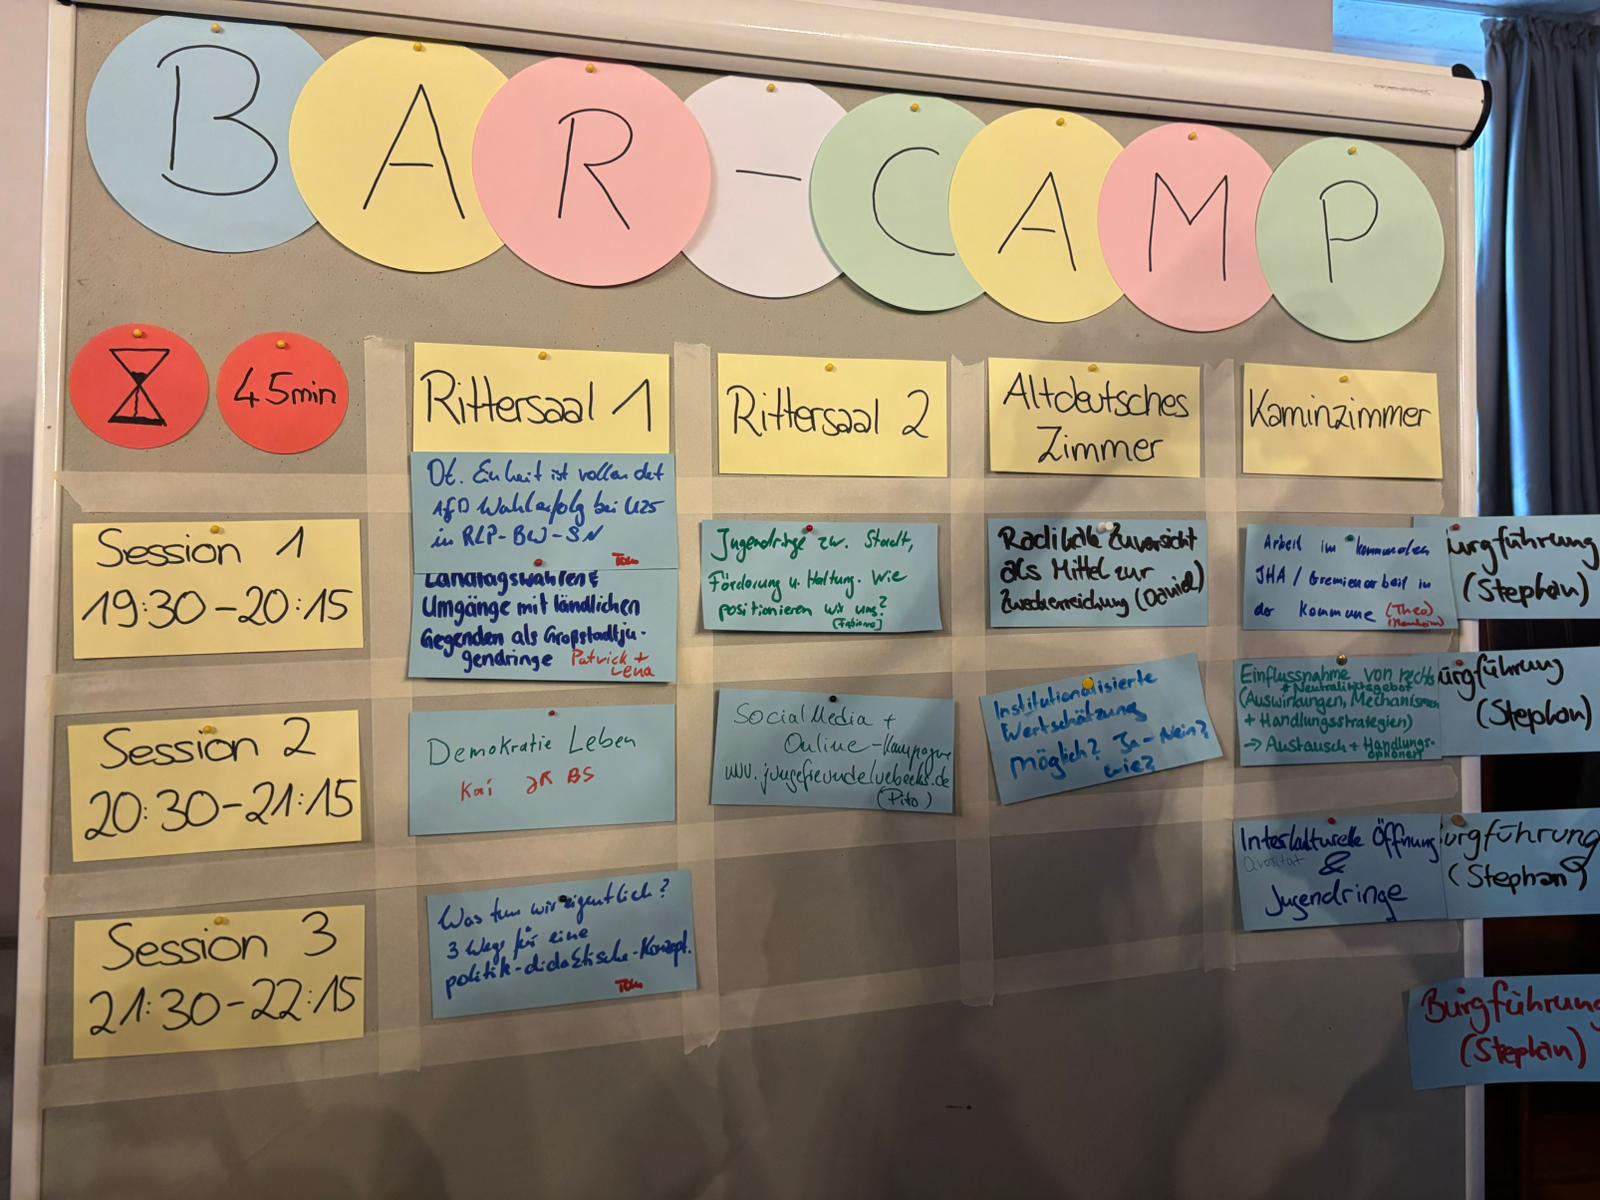 BAR-CAMP
45min
Rittersaal 1
Rittersaal 2
Altdeutsches
Zimmer
Kaminzimmer
Session 1
19:30-20:15
Dt. Einheit ist vollendet
AfD Wahlerfolg bei U25
in RLP-BW-SN
Tom
Landtagswahlen &
Umgänge mit ländlichen
Gegenden als Großstadtju-
gendringe Patrick +
Lena
Jugendringe zw. Stadt,
Förderung u. Haltung. Wie
positionieren wir uns?
Radikale Zuversicht
als Mittel zur
Zweckerreichung (Daniel)
Arbeit im kommunalen
JHA / Gremienarbeit in
der Kommune (Theo)
urgführung
(Stephan)
Session 2
20:30-21:15
Demokratie Leben
Kai JR BS
Social Media +
Online-Kampagne
(Pito)
Institutionalisierte
Wertschätzung
möglich? Ja-Nein?
wie?
Einflussnahme von rechts
+ Neutralitätsgebot
(Auswirkungen, Mechanismen
+ Handlungsstrategien)
→ Austausch + Handlungs-
optionen
urgführung
(Stephan)
Session 3
21:30-22:15
Was tun wir eigentlich?
3 Wege für eine
politik-didaktische-Konzept.
Tom
Interkulturelle Öffnung
&
Jugendringe
urgführung
(Stephan)
Burgführung
(Stephan)